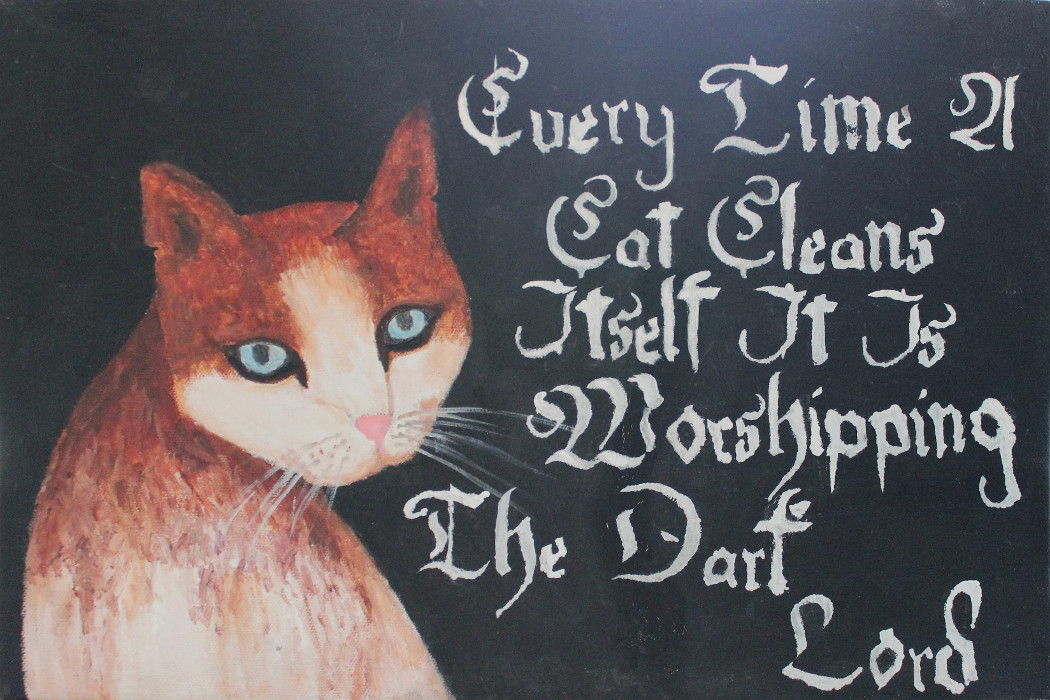 Every Time A
Cat Cleans
Itself It Is
Worshipping
The Dark
Lord